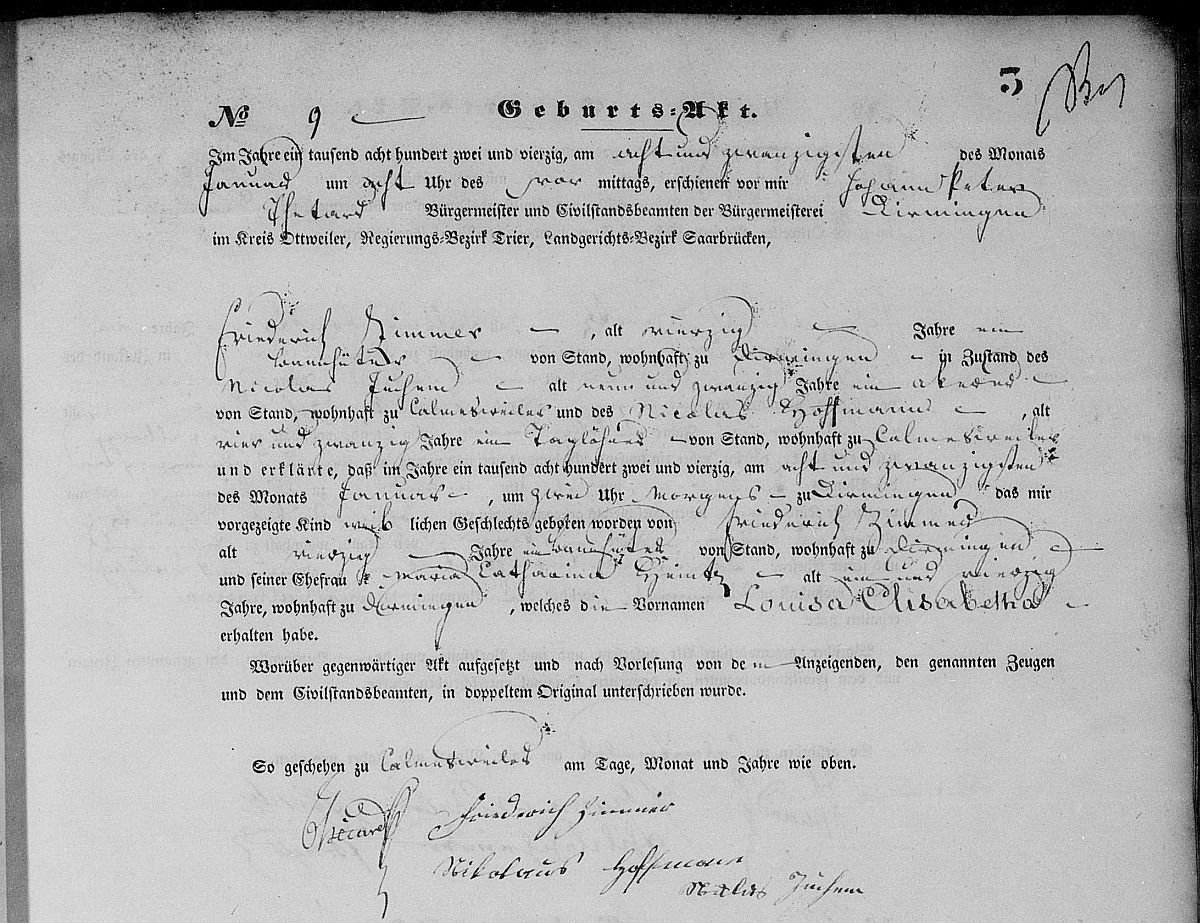 5
No 9 Geburts-Akt.
Im Jahre ein tausend acht hundert zwei und vierzig, am acht und zwanzigsten des Monats
Januar um acht Uhr des vor mittags, erschienen vor mir Johann Peter
Thetard Bürgermeister und Civilstandsbeamten der Bürgermeisterei Dirmingen
im Kreis Ottweiler, Regierungs-Bezirk Trier, Landgerichts-Bezirk Saarbrücken,
Friederich Zimmer, alt vierzig Jahre ein
bannhüter von Stand, wohnhaft zu Dirmingen in Zustand des
Nicolas Juchem alt neun und zwanzig Jahre ein akerer
von Stand, wohnhaft zu Calmesweiler und des Nicolas Hoffmann, alt
vier und zwanzig Jahre ein Taglöhner von Stand, wohnhaft zu Calmesweiler
und erklärte, daß im Jahre ein tausend acht hundert zwei und vierzig, am acht und zwanzigsten
des Monats Januar, um zwei Uhr Morgens zu Dirmingen das mir
vorgezeigte Kind weib lichen Geschlechts geboren worden von Friederich Zimmer
alt vierzig Jahre ein bannhüter von Stand, wohnhaft zu Dirmingen,
und seiner Ehefrau Maria Catharina Heintz alt ein und vierzig
Jahre, wohnhaft zu Dirmingen, welches die Vornamen Louisa Elisabetha
erhalten habe.
Worüber gegenwärtiger Akt aufgesetzt und nach Vorlesung von dem Anzeigenden, den genannten Zeugen
und dem Civilstandsbeamten, in doppeltem Original unterschrieben wurde.
So geschehen zu Calmesweiler am Tage, Monat und Jahre wie oben.
Friederich Zimmer
Nikolaus Hoffmann
Juchem